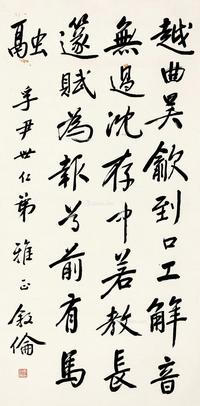 越曲吴歈到口工解音
無過沈存中若教長
篴賦為報尊前有馬
融
孚尹世仁弟雅正 叙倫